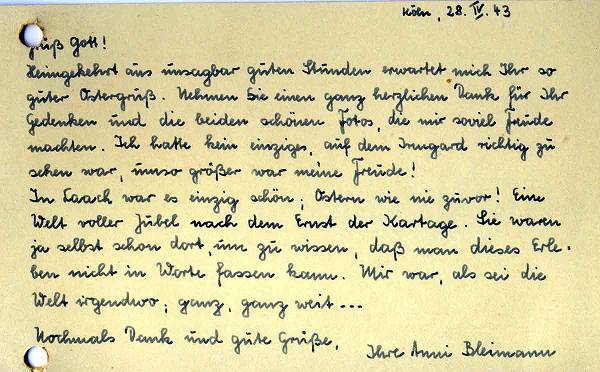 Köln, 28. IV. 43
Grüß Gott!
Heimgekehrt aus unsagbar guten Stunden erwartet mich Ihr so
guter Ostergruß. Nehmen Sie einen ganz herzlichen Dank für Ihr
Gedenken und die beiden schönen Fotos, die mir soviel Freude
machten. Ich hatte kein einziges, auf dem Irmgard richtig zu
sehen war, umso größer war meine Freude!
In Laach war es einzig schön; Ostern wie nie zuvor! Eine
Welt voller Jubel nach dem Ernst der Kartage. Sie waren
ja selbst schon dort, um zu wissen, daß man dieses Erle-
ben nicht in Worte fassen kann. Mir war, als sei die
Welt irgendwo; ganz, ganz weit ---
Nochmals Dank und gute Grüße,
Ihre Anni Bleimann